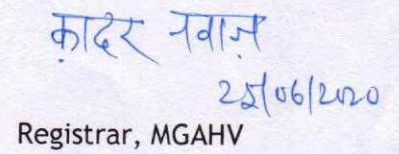 क़ादर नवाज़
25/06/2020
Registrar, MGAHV